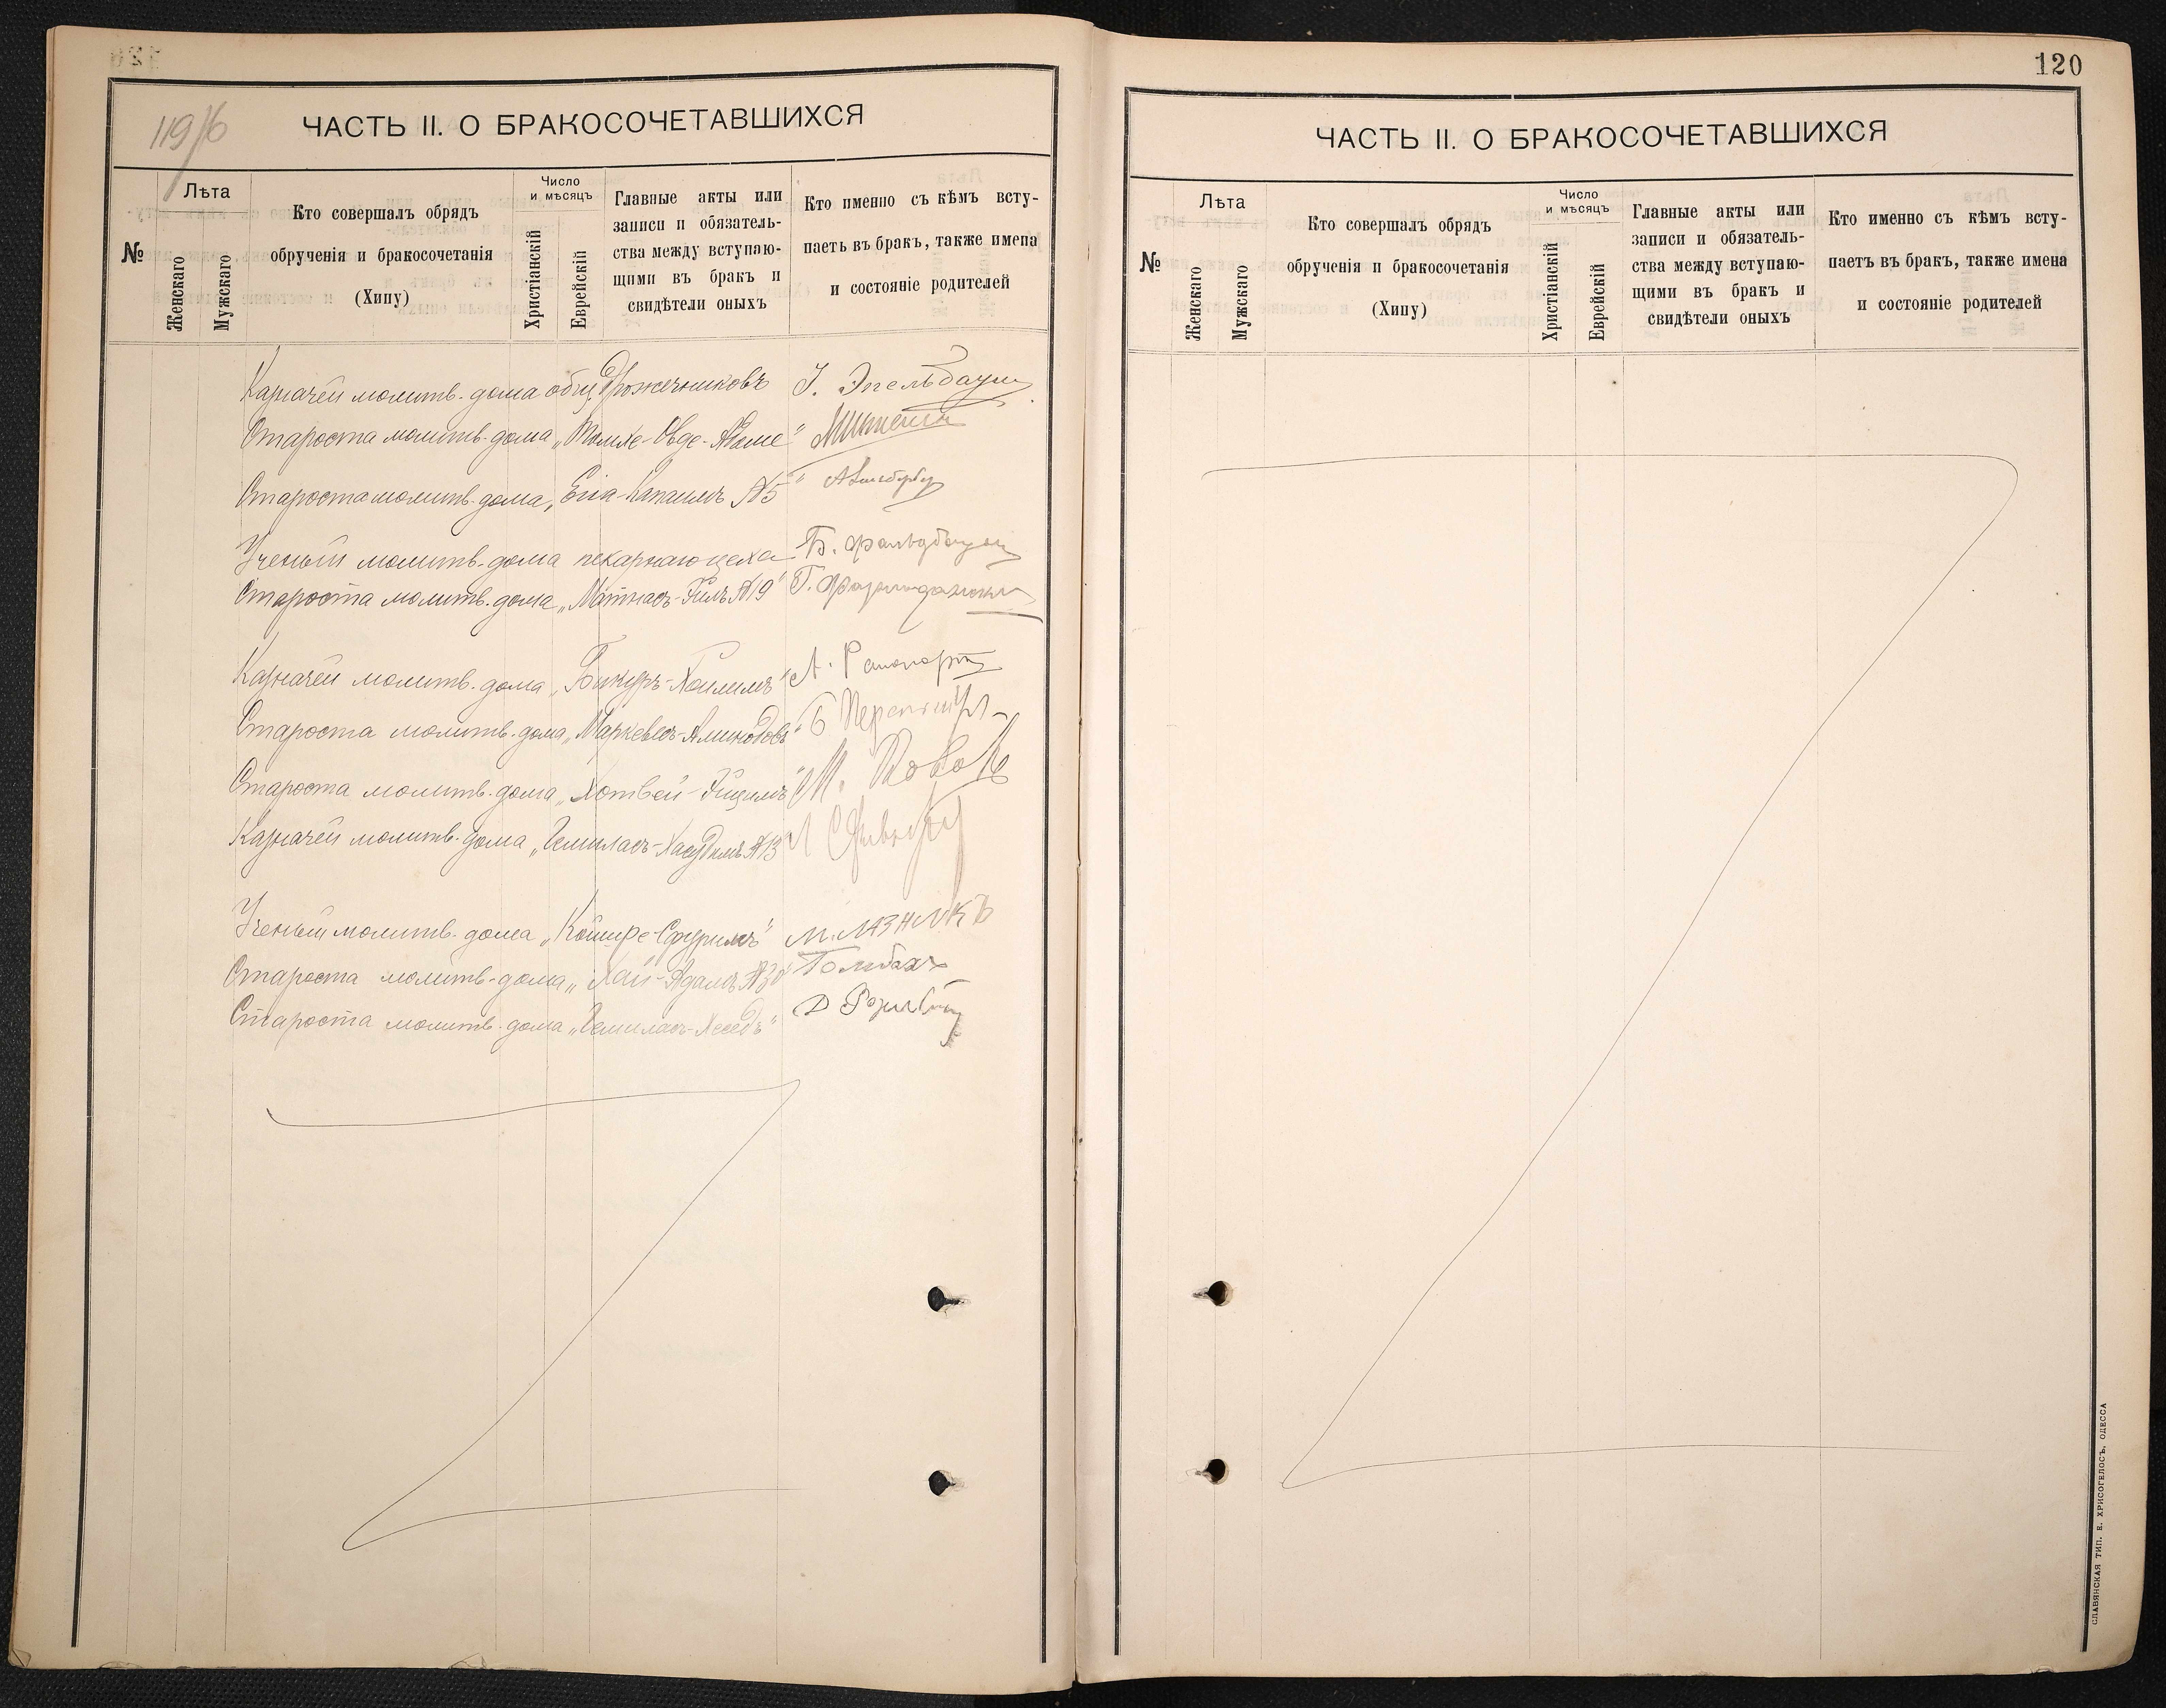 119/6
ЧАСТЬ II. О БРАКОСОЧЕТАВШИХСЯ
№
Лѣта
Женскаго
Мужскаго
Кто совершалъ обрядъ
обрученія и бракосочетанія
(Хипу)
Число
и мѣсяцъ
Христіанскій
Еврейскій
Главные акты или
записи и обязатель-
ства между вступаю-
щими въ бракъ и
свидѣтели оныхъ
Кто именно съ кѣмъ всту-
паетъ въ бракъ, также имена
и состояніе родителей
Казначей молитв. дома общ. Дрожечниковъ І. Эпельбаум
Староста молитв. дома
Староста молитв. дома №5
Ученый молитв. дома пекарнаго цеха Б.
Староста молитв. дома №19" Г.
Казначей молитв. дома „Бикуръ-Хоилимъ" А. Рапопортъ
Староста молитв. дома Б
Староста молитв. дома М. Коваль
Казначей молитв. дома „Гемиласъ-Хасудимъ №13"
Ученый молитв. дома М. ЛАЗНИКЪ
Староста молитв. дома „Хай-Адамъ Гольбахъ
Староста молитв. дома „Гемиласъ-Хеседъ" Д
120
ЧАСТЬ II. О БРАКОСОЧЕТАВШИХСЯ
№
Лѣта
Женскаго
Мужскаго
Кто совершалъ обрядъ
обрученія и бракосочетанія
(Хипу)
Число
и мѣсяцъ
Христіанскій
Еврейскій
Главные акты или
записи и обязатель-
ства между вступаю-
щими въ бракъ и
свидѣтели оныхъ
Кто именно съ кѣмъ всту-
паетъ въ бракъ, также имена
и состояніе родителей
СЛАВЯНСКАЯ ТИП. Е. ХРИСОГЕЛОСЪ, ОДЕССА